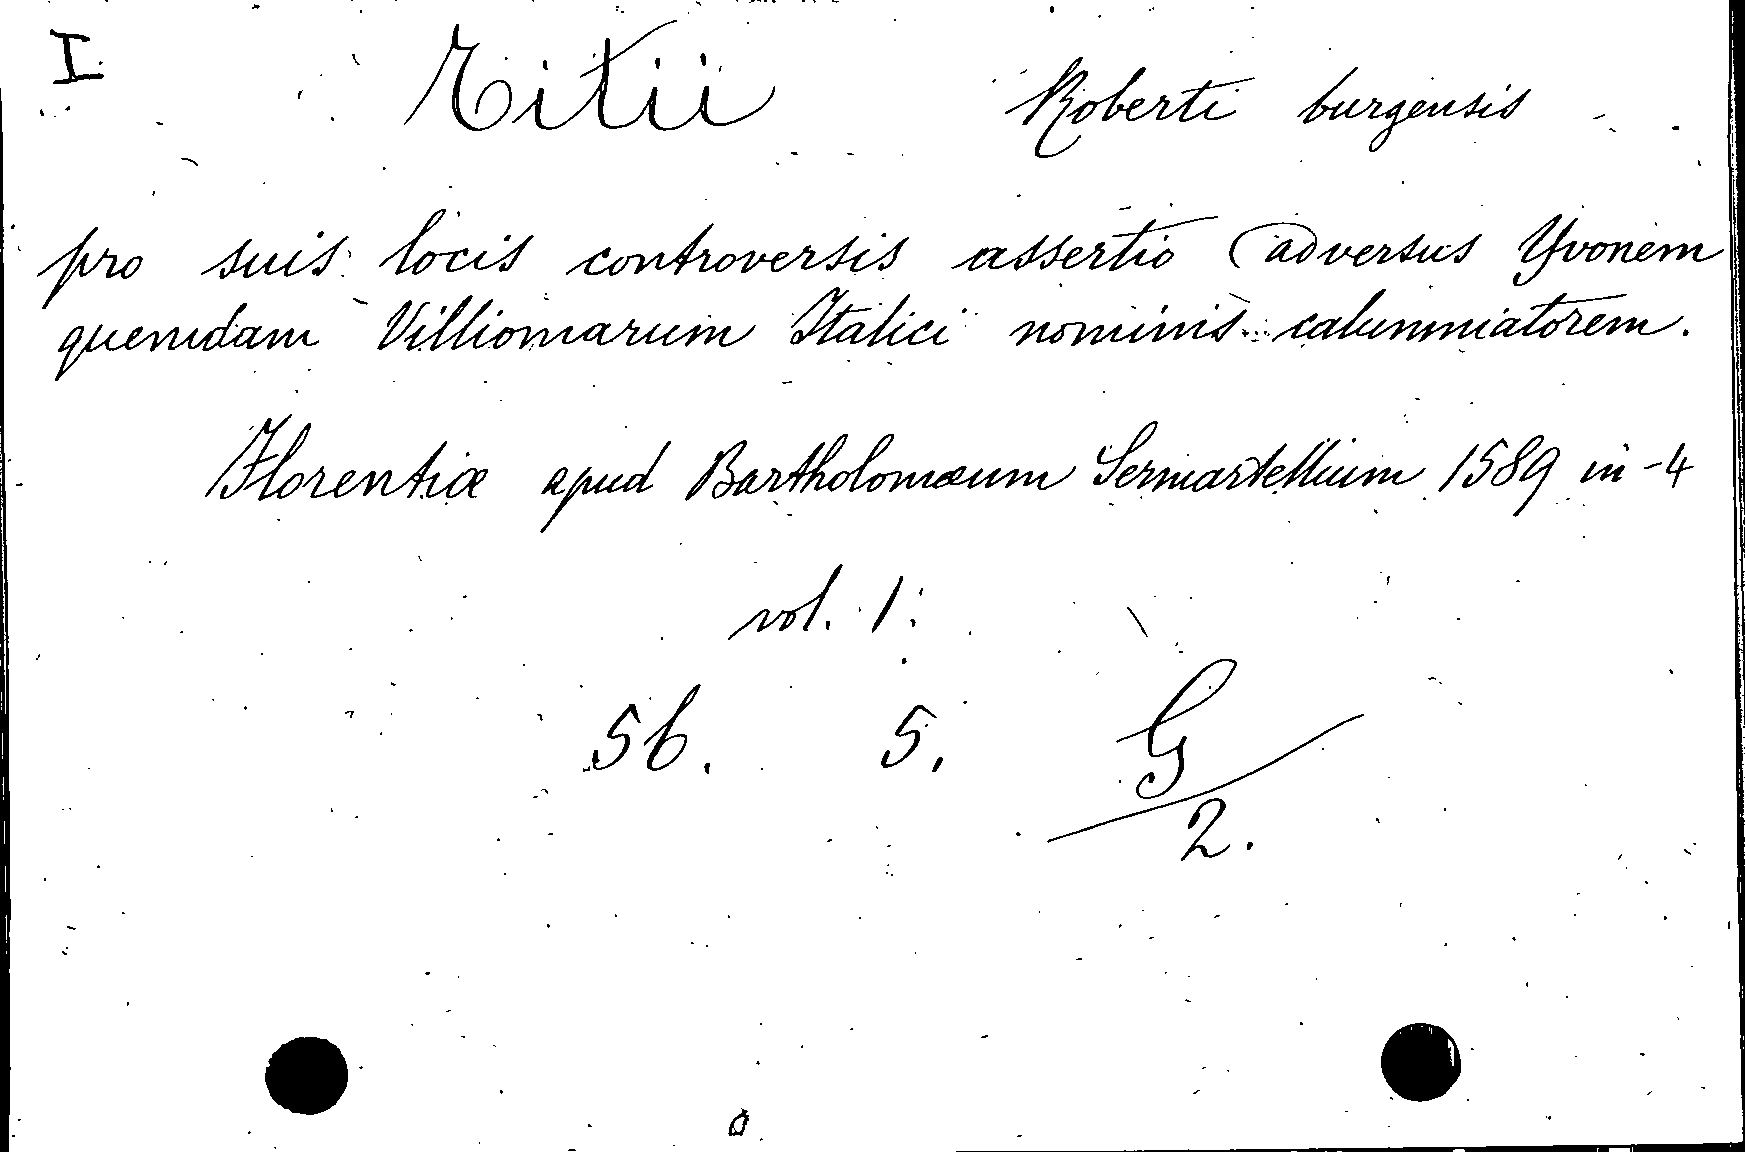 I
Titii Roberti burgensis
pro suis locis controversis assertio adversus Yvonem
quemdam Villiomarum Italici nominis calumniatorem.
Florentiæ apud Bartholomæum Sermartellium 1589 in-4
vol. 1.
56. 5. G
2.